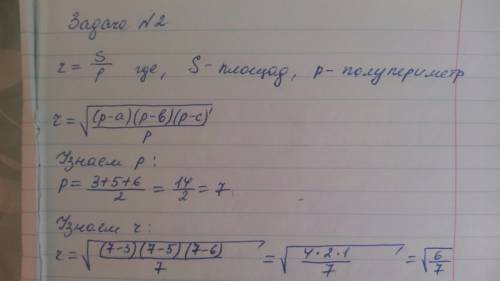 Задача №2
r = S/p где, S - площад, p - полупериметр
r = √((p-a)(p-в)(p-c)/p)
Узнаем p:
p = (3+5+6)/2 = 14/2 = 7
Узнаем r:
r = √((7-3)(7-5)(7-6)/7) = √(4·2·1/7) = √(6/7)